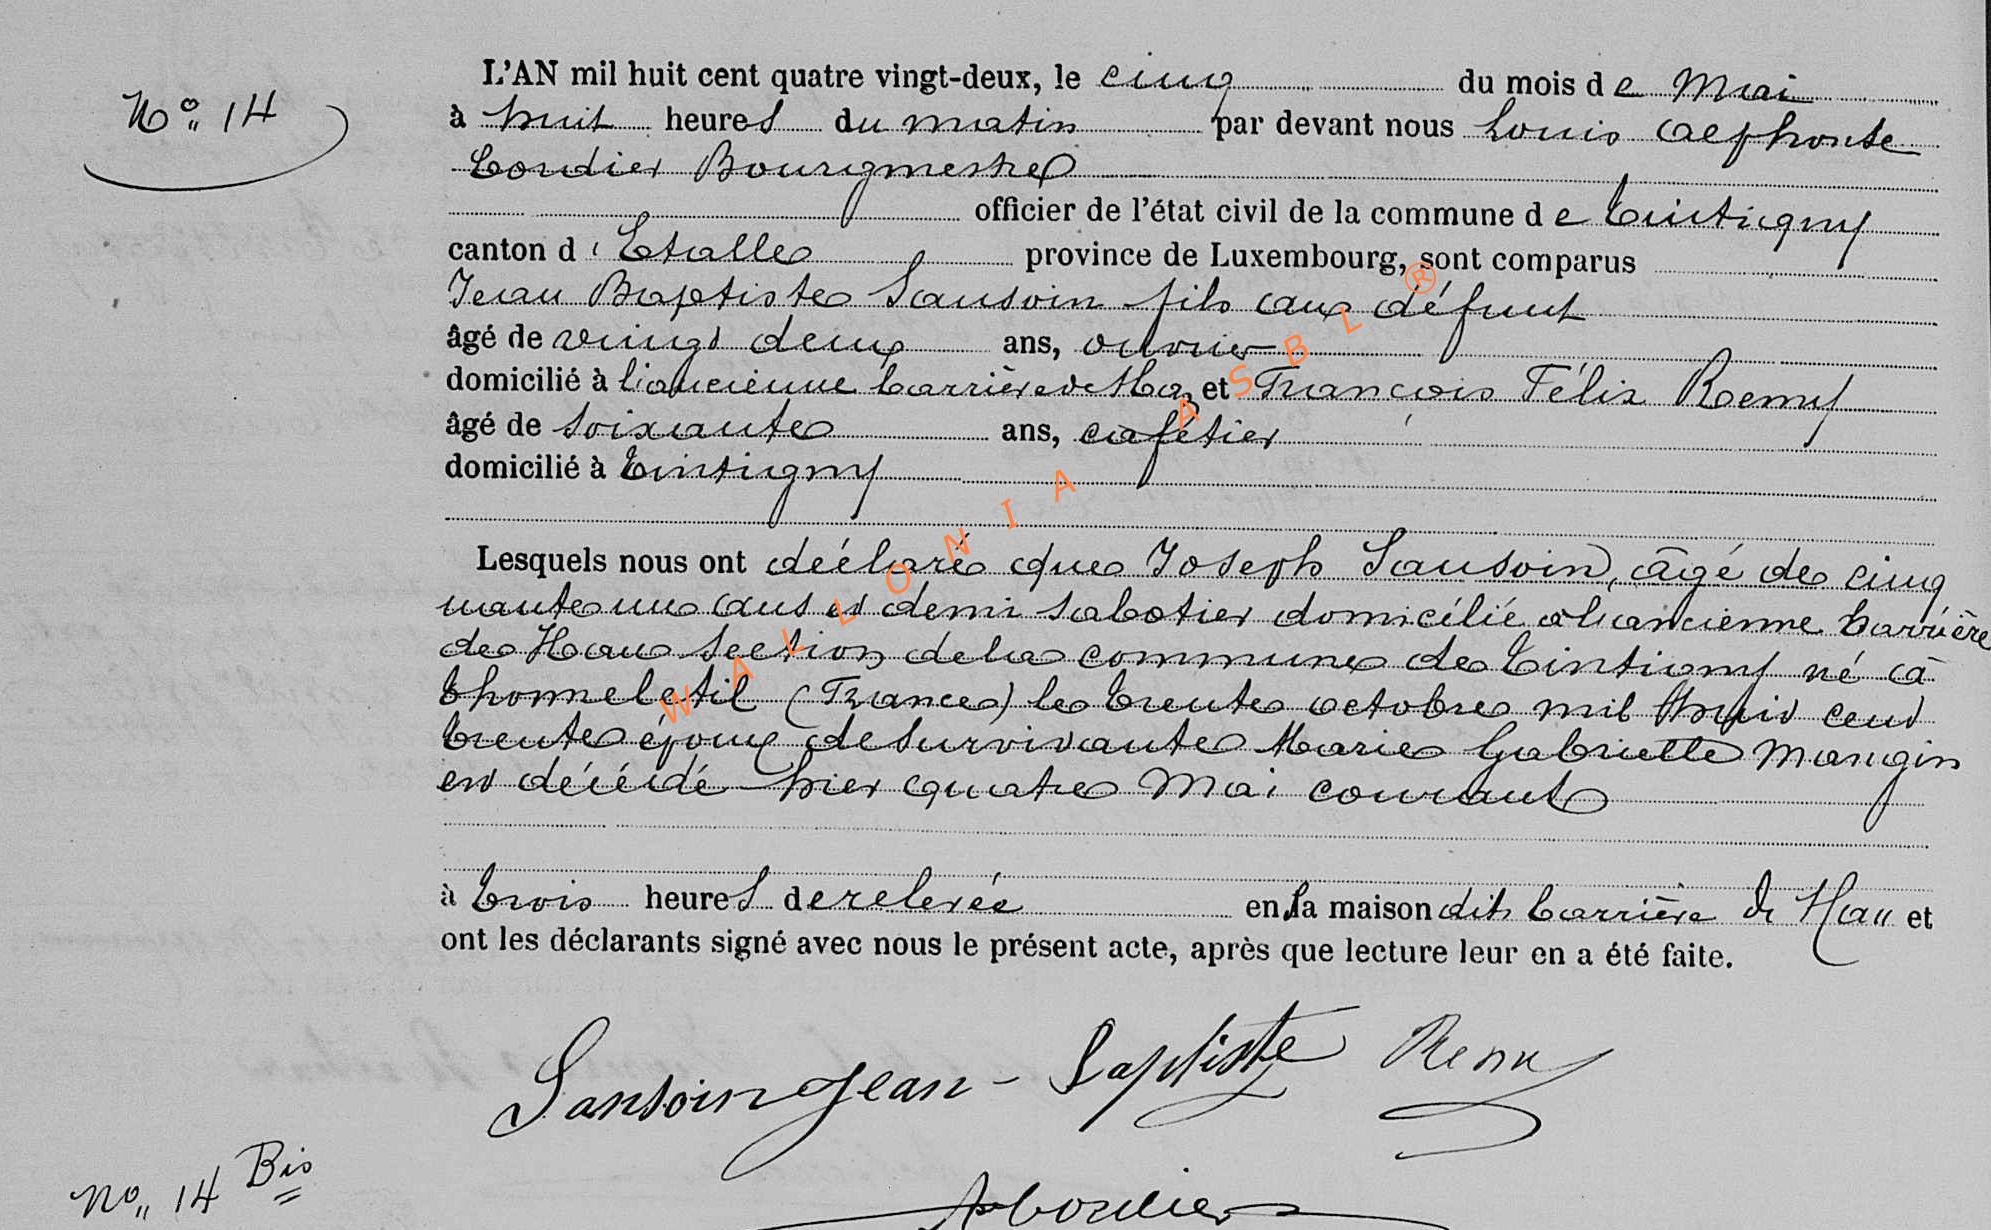 N° 14
L'AN mil huit cent quatre vingt-deux, le cinq du mois de Mai
à huit heures du matin par devant nous Louis Alphonse
Cordier Bourgmestre
officier de l'état civil de la commune de Tintigny
canton d'Etalle province de Luxembourg, sont comparus
Jean Baptiste Sansoin fils au défunt
âgé de vingt deux ans, ouvrier
domicilié à l'ancienne barrière de et François Félix Remy
âgé de soixante ans, cafetier
domicilié à Tintigny
Lesquels nous ont déclaré que Joseph Sansoin, âgé de cinq
uante un ans et demi sabotier domicilié à l'ancienne barrière
de Han section de la commune de Tintigny né à
thonneletil (France) le trente octobre mil huit cent
trente époux de survivante Marie Gabrielle Mangin
est décédé hier quatre Mai courant
à trois heures de relevée en la maison dit barrière de Han et
ont les déclarants signé avec nous le présent acte, après que lecture leur en a été faite.
Sansoin Jean-Baptiste Remy
ACordier
No 14 Bis
WALLONIA ASBL ®